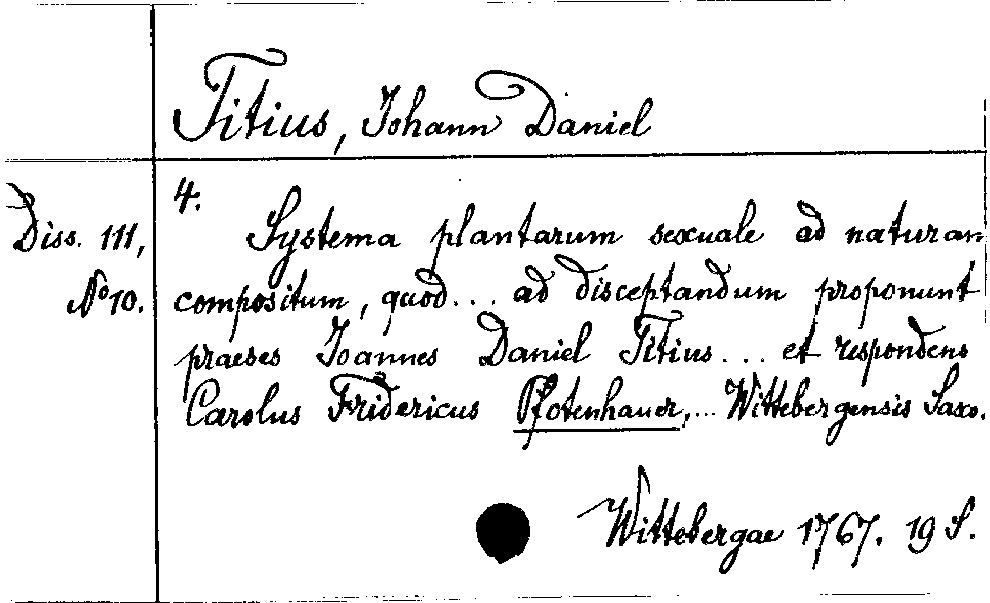 Titius, Johann Daniel
4.
Diss. 111,
No 10.
Systema plantarum sexuale ad naturam
compositum, quod... ad disceptandum proponunt
praeses Ioannes Daniel Titius... et respondens
Carolus Fridericus Pfotenhauer,... Wittebergensis Saxo.
Wittebergae 1767. 19 S.